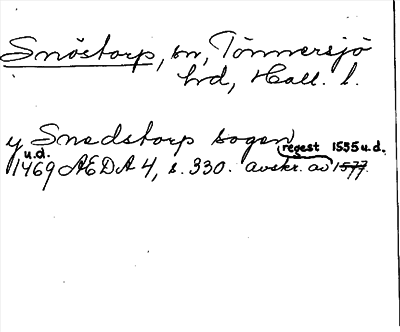 Snöstorp, sn, Tönnersjö
hd, Hall. l.
y Snedstorp sogen
u.d. regest 1555 u.d.
1469 AEDA 4, s. 330. avskr. av 1577.